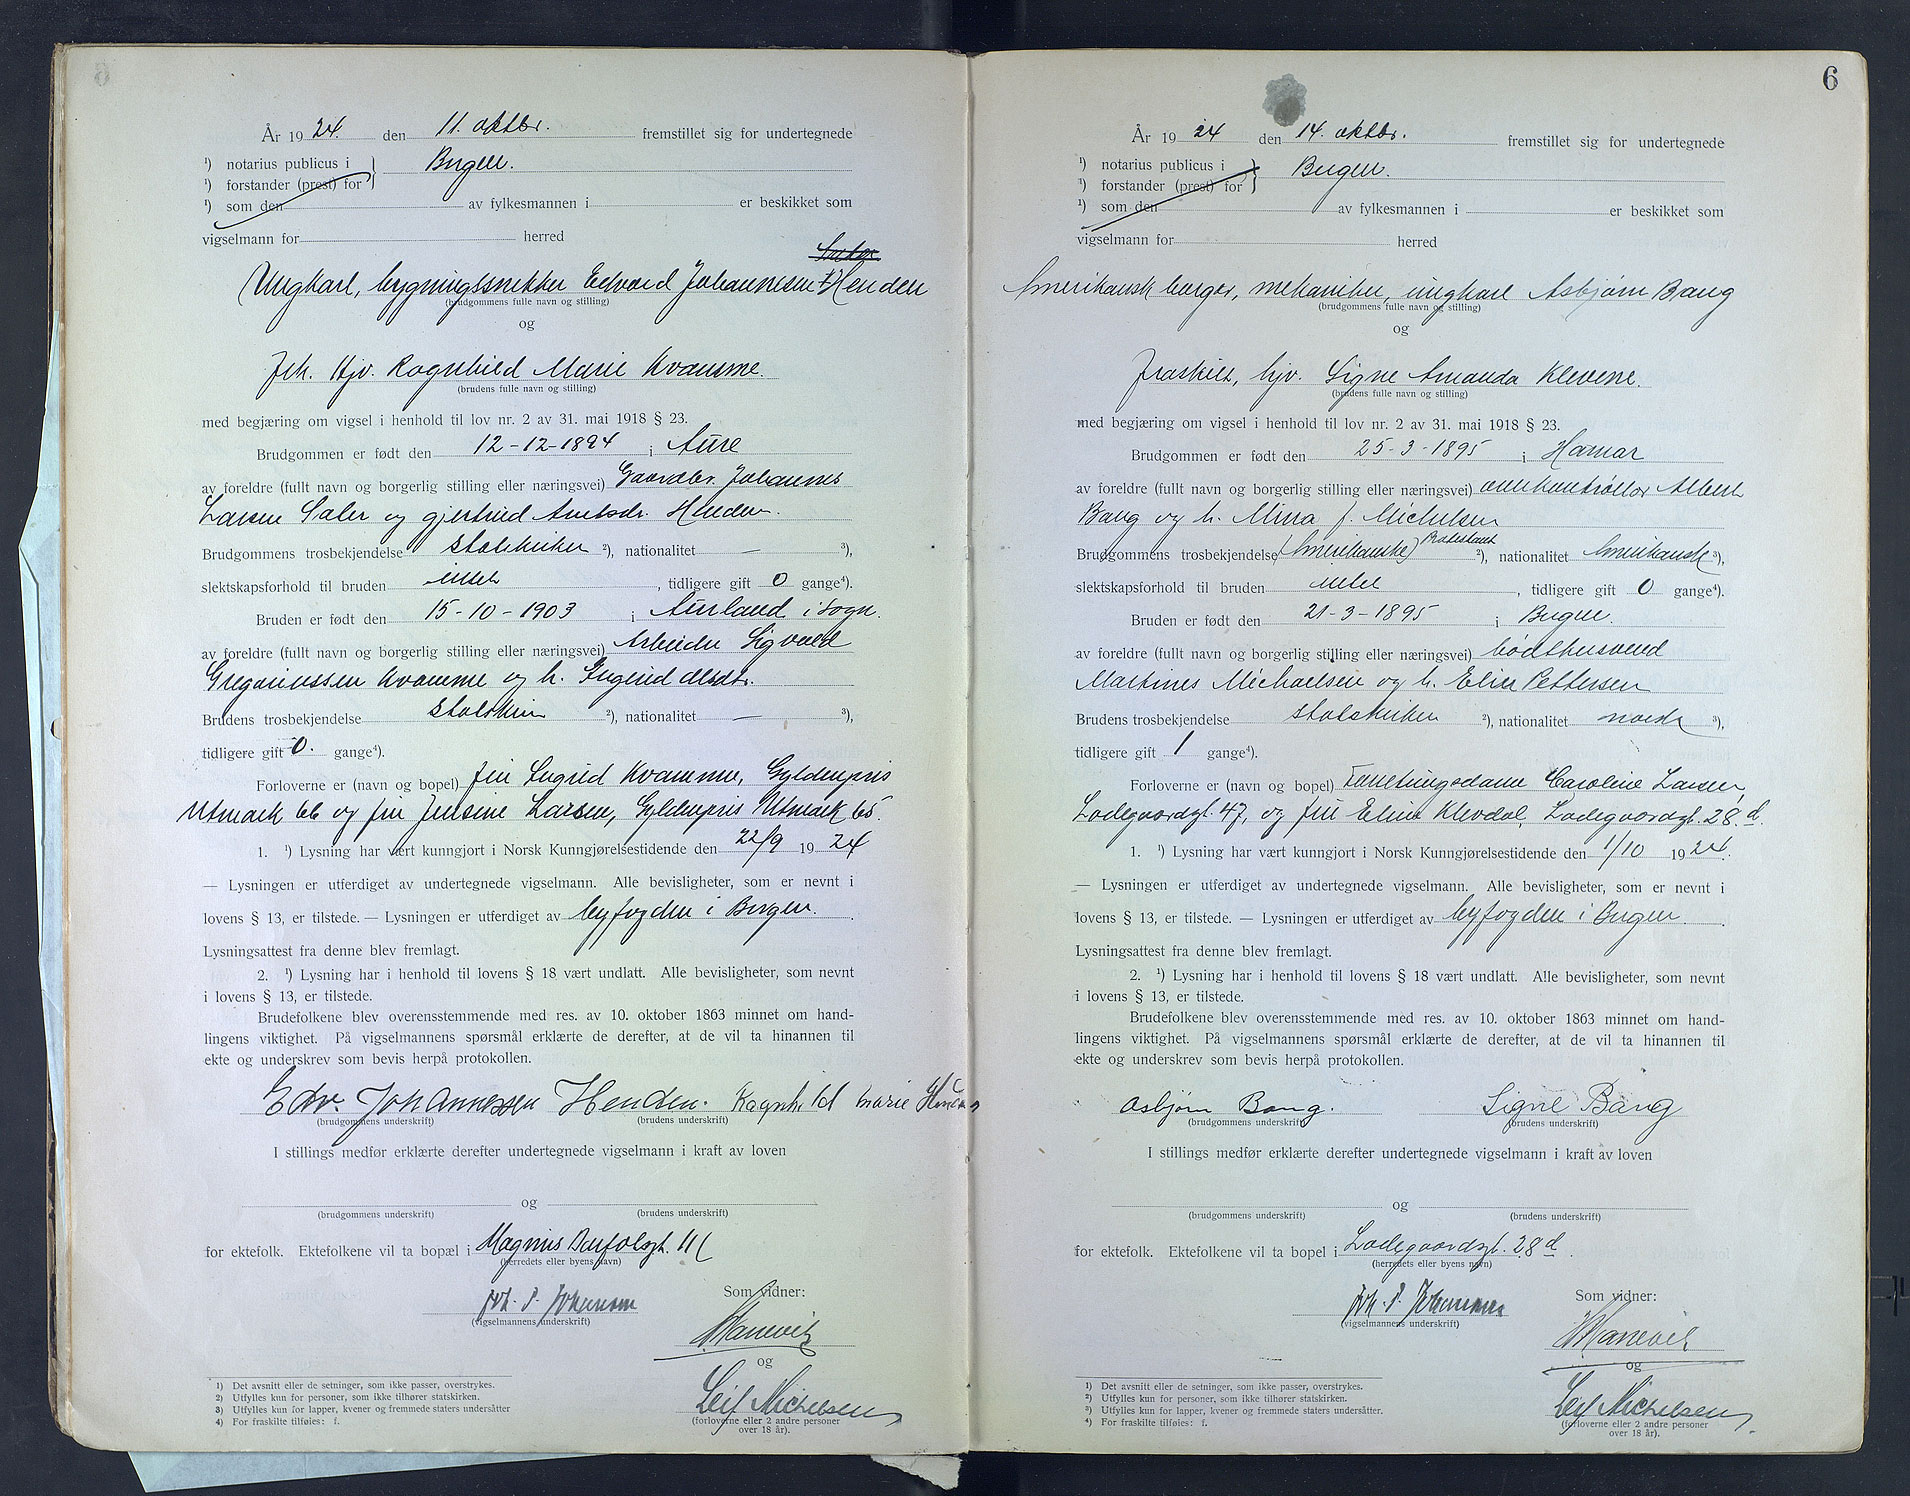 År 1924. den 11. oktbr. fremstillet sig for undertegnede
¹) notarius publicus i } Bergen.
¹) forstander (prest) for
¹) som den av fylkesmannen i er beskikket som
vigselmann for herred
Ungkarl, bygningssnekker Edvard Johannesen Henden
(brudgommens fulle navn og stilling)
og
Frk. Hjv. Ragnhild Marie Kvamme.
(brudens fulle navn og stilling)
med begjæring om vigsel i henhold til lov nr. 2 av 31. mai 1918 § 23.
Brudgommen er født den 12-12-1894 i Aure
av foreldre (fullt navn og borgerlig stilling eller næringsvei) Gaardbr. Johannes
Larsen Sæter og Gjertrud Andsdr. Henden.
Brudgommens trosbekjendelse statskirken ²), nationalitet — ³),
slektskapsforhold til bruden intet, tidligere gift 0 gange⁴).
Bruden er født den 15-10-1903 i Aurland i Sogn.
av foreldre (fullt navn og borgerlig stilling eller næringsvei) Arbeider Sigvald
Gregoriussen Kvamme og h. Ingrid Olsdtr.
Brudens trosbekjendelse statskirken ²), nationalitet — ³),
tidligere gift 0. gange⁴).
Forloverne er (navn og bopel) fru Ingrid Kvamme, Gyldenpris
Utmark 66 og fru Jensine Larsen, Gyldenpris Utmark 65.
1. ¹) Lysning har vært kunngjort i Norsk Kunngjørelsestidende den 22/9 1924
— Lysningen er utferdiget av undertegnede vigselmann. Alle bevisligheter, som er nevnt i
lovens § 13, er tilstede. — Lysningen er utferdiget av byfogden i Bergen.
Lysningsattest fra denne blev fremlagt.
2. ¹) Lysning har i henhold til lovens § 18 vært undlatt. Alle bevisligheter, som nevnt
i lovens § 13, er tilstede.
Brudefolkene blev overensstemmende med res. av 10. oktober 1863 minnet om hand-
lingens viktighet. På vigselmannens spørsmål erklærte de derefter, at de vil ta hinannen til
ekte og underskrev som bevis herpå protokollen.
Edv. Johannessen Henden. Ragnhild Marie Henden
(brudgommens underskrift) (brudens underskrift)
I stillings medfør erklærte derefter undertegnede vigselmann i kraft av loven
og
(brudgommens underskrift) (brudens underskrift)
for ektefolk. Ektefolkene vil ta bopæl i Magnus Barfotsgt. 11
(herredets eller byens navn)
Joh. P. Johansen Som vidner:
(vigselmannens underskrift)
Hanevik
og
Leif Michelsen
(forloverne eller 2 andre personer
over 18 år).
1) Det avsnitt eller de setninger, som ikke passer, overstrykes.
2) Utfylles kun for personer, som ikke tilhører statskirken.
3) Utfylles kun for lapper, kvener og fremmede staters undersåtter
4) For fraskilte tilføies: f.
6
År 1924 den 14. oktbr. fremstillet sig for undertegnede
¹) notarius publicus i } Bergen.
¹) forstander (prest) for
¹) som den av fylkesmannen i er beskikket som
vigselmann for herred
Amerikansk borger, mekaniker, ungkarl Asbjørn Bang
(brudgommens fulle navn og stilling)
og
fraskilt, hjv. Signe Amanda Klevene.
(brudens fulle navn og stilling)
med begjæring om vigsel i henhold til lov nr. 2 av 31. mai 1918 § 23.
Brudgommen er født den 25-3-1895 i Hamar
av foreldre (fullt navn og borgerlig stilling eller næringsvei) Albert
Bang og h. Mina f. Michelsen
Brudgommens trosbekjendelse (Amerikanske) Protestant ²), nationalitet Amerikansk ³),
slektskapsforhold til bruden intet, tidligere gift 0 gange⁴).
Bruden er født den 21-3-1895 i Bergen.
av foreldre (fullt navn og borgerlig stilling eller næringsvei) bødthusvend
Martines Michaelsen og h. Elise Pettersen
Brudens trosbekjendelse statskirken ²), nationalitet norsk ³),
tidligere gift 1 gange⁴).
Forloverne er (navn og bopel) Forretningsdame Caroline Larsen,
Ladegaardsgt. 47, og fru Elina Klevdal, Ladegaardsgt. 28 d.
1. ¹) Lysning har vært kunngjort i Norsk Kunngjørelsestidende den 1/10 1924.
— Lysningen er utferdiget av undertegnede vigselmann. Alle bevisligheter, som er nevnt i
lovens § 13, er tilstede. — Lysningen er utferdiget av byfogden i Bergen.
Lysningsattest fra denne blev fremlagt.
2. ¹) Lysning har i henhold til lovens § 18 vært undlatt. Alle bevisligheter, som nevnt
i lovens § 13, er tilstede.
Brudefolkene blev overensstemmende med res. av 10. oktober 1863 minnet om hand-
lingens viktighet. På vigselmannens spørsmål erklærte de derefter, at de vil ta hinannen til
ekte og underskrev som bevis herpå protokollen.
Asbjørn Bang. Signe Bang
(brudgommens underskrift) (brudens underskrift)
I stillings medfør erklærte derefter undertegnede vigselmann i kraft av loven
og
(brudgommens underskrift) (brudens underskrift)
for ektefolk. Ektefolkene vil ta bopel i Ladegaardsgt. 28 d.
(herredets eller byens navn)
Joh. P. Johansen Som vidner:
(vigselmannens underskrift)
Hanevik
og
Leif Michelsen
(forloverne eller 2 andre personer
over 18 år).
¹) Det avsnitt eller de setninger, som ikke passer, overstrykes.
²) Utfylles kun for personer, som ikke tilhører statskirken.
³) Utfylles kun for lapper, kvener og fremmede staters undersåtter.
⁴) For fraskilte tilføies: f.